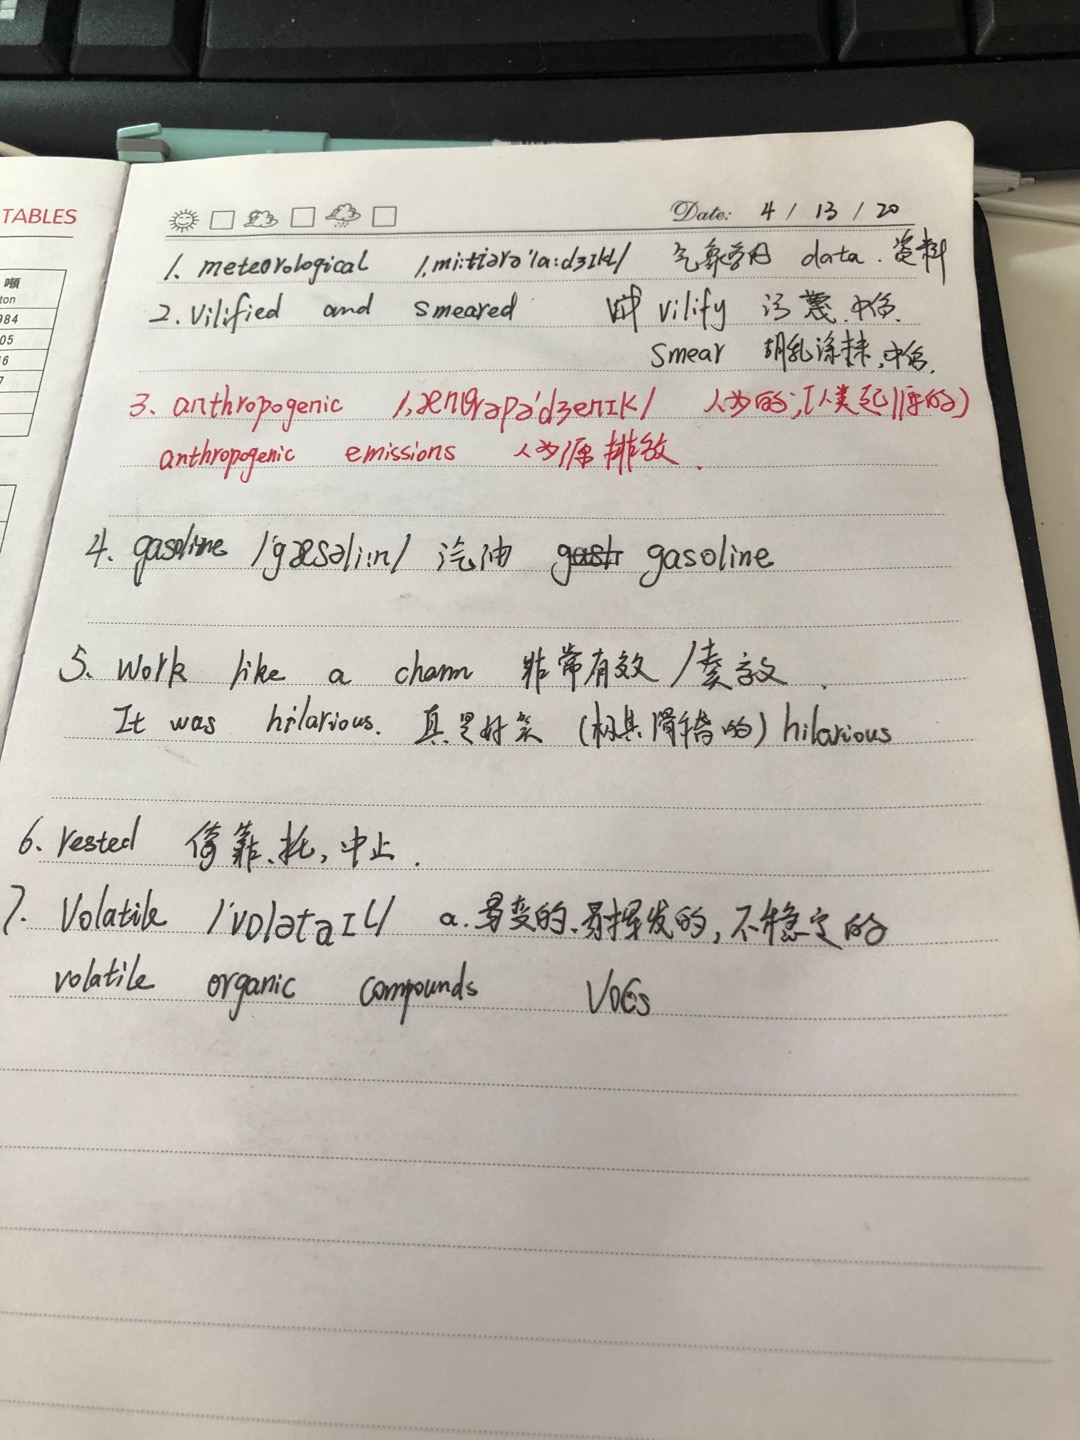 TABLES
Date: 4 / 13 / 20
噸
ton
984
05
16
7
1. meteorological /ˌmiːtiərəˈlɑːdʒɪkl/ 气象学的 data. 资料
2. Vilified and smeared vilify 污蔑.中伤.
smear 胡乱涂抹,中伤.
3. anthropogenic /ˌænθrəpəˈdʒenɪk/ 人为的;[人类起源的)
anthropogenic emissions 人为源排放.
4. gasoline /ˈgæsəliːn/ 汽油 gasoline
5. Work like a charm 非常有效/奏效.
It was hilarious. 真是好笑 (极其滑稽的) hilarious
6. rested 倚靠、托, 中止.
7. Volatile /ˈvɒlətaɪl/ a.易变的.易挥发的, 不稳定的
volatile organic compounds VOCs